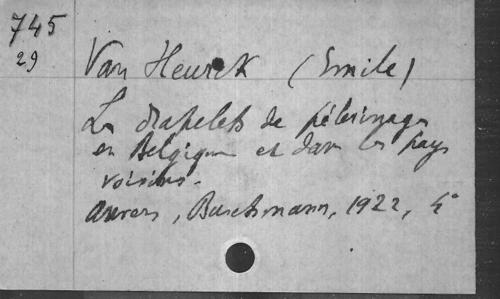 745
29
Van Heurck (Emile)
Les drapelets de pélerinages
en Belgique et dans les pays
voisins.
Anvers, Buschmann, 1922, 4°